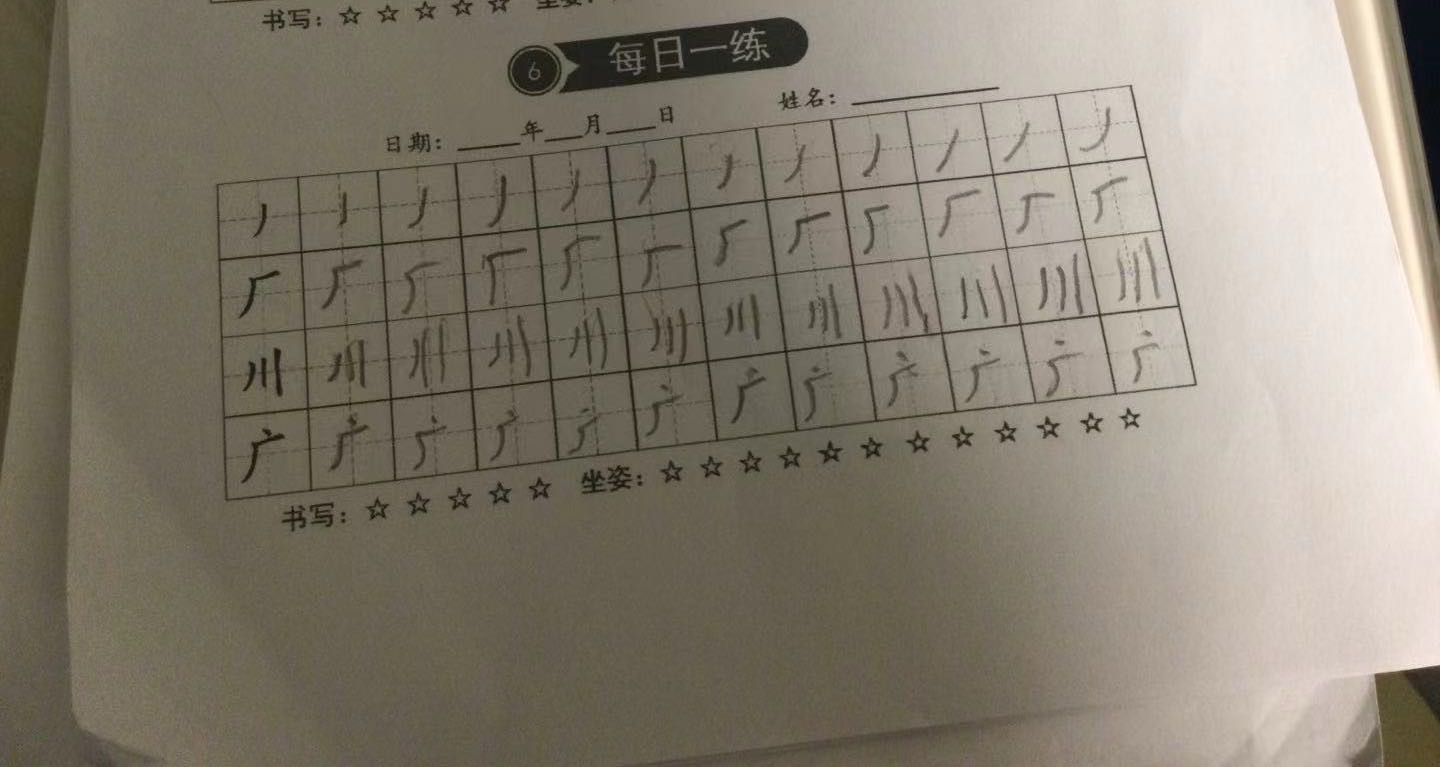 书写：☆ ☆ ☆ ☆ ☆ 坐姿：
6 每日一练
日期：____年___月____日 姓名：________
丿 丿 丿 丿 丿 丿 丿 丿 丿 丿 丿 丿
厂 厂 厂 厂 厂 厂 厂 厂 厂 厂 厂 厂
川 川 川 川 川 川 川 川 川 川 川 川
广 广 广 广 广 广 广 广 广 广 广 广
书写：☆ ☆ ☆ ☆ ☆ 坐姿：☆ ☆ ☆ ☆ ☆ ☆ ☆ ☆ ☆ ☆ ☆ ☆